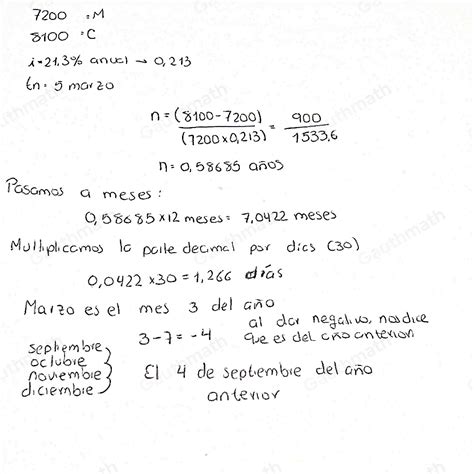 7200 =M
8100 =C
i=21.3% anual → 0,213
tn = 5 marzo
n = (8100-7200) / (7200x0,213) = 900 / 1533,6
n= 0,58685 años
Pasamos a meses:
0,58685 x12 meses = 7,0422 meses
Multiplicamos la parte decimal por dias (30)
0,0422 x30 = 1,266 días
Marzo es el mes 3 del año
3-7=-4 al dar negativo, nos dice que es del año anterior
septiembre
octubre
noviembre
diciembre
El 4 de septiembre del año
anterior
Gauthmath